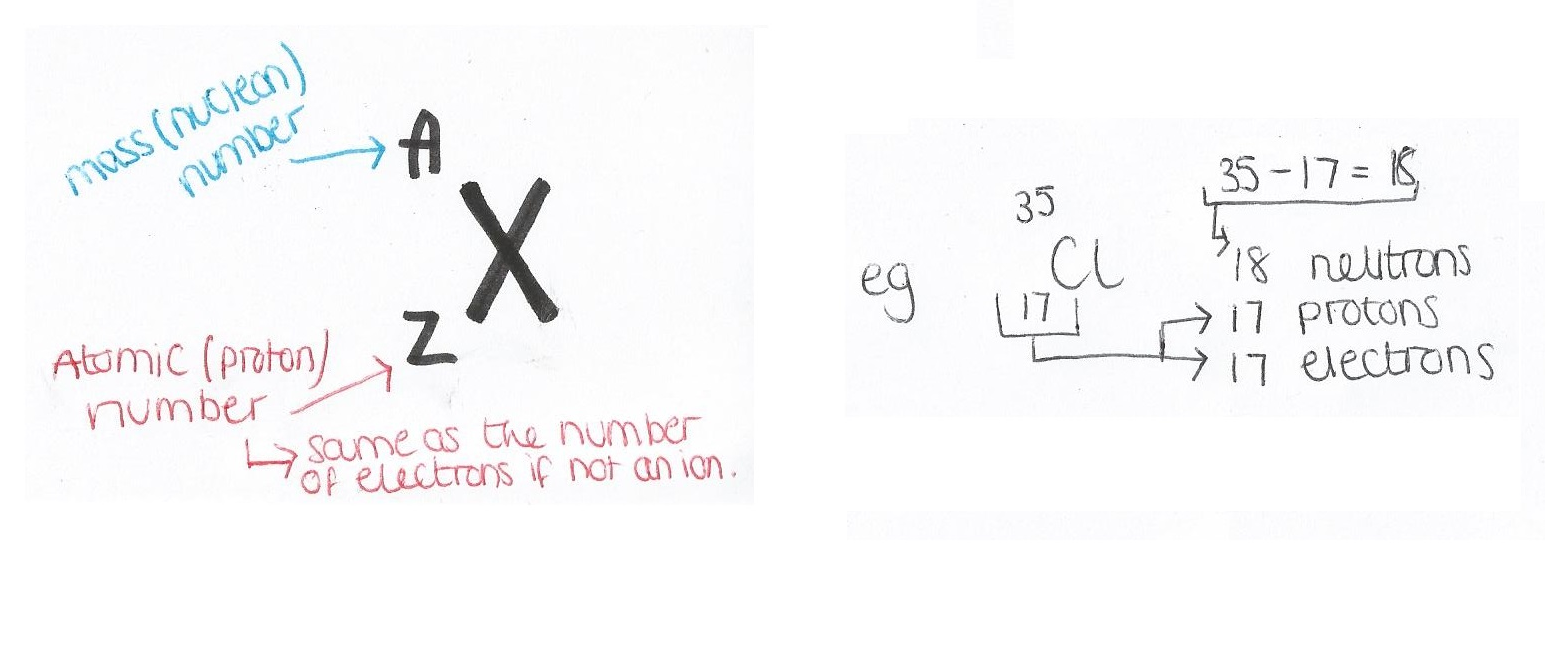 mass (nucleon)
number
A
X
Z
Atomic (proton)
number
same as the number
of electrons if not an ion.
35 - 17 = 18
35
eg
Cl
18 neutrons
17
17 protons
17 electrons